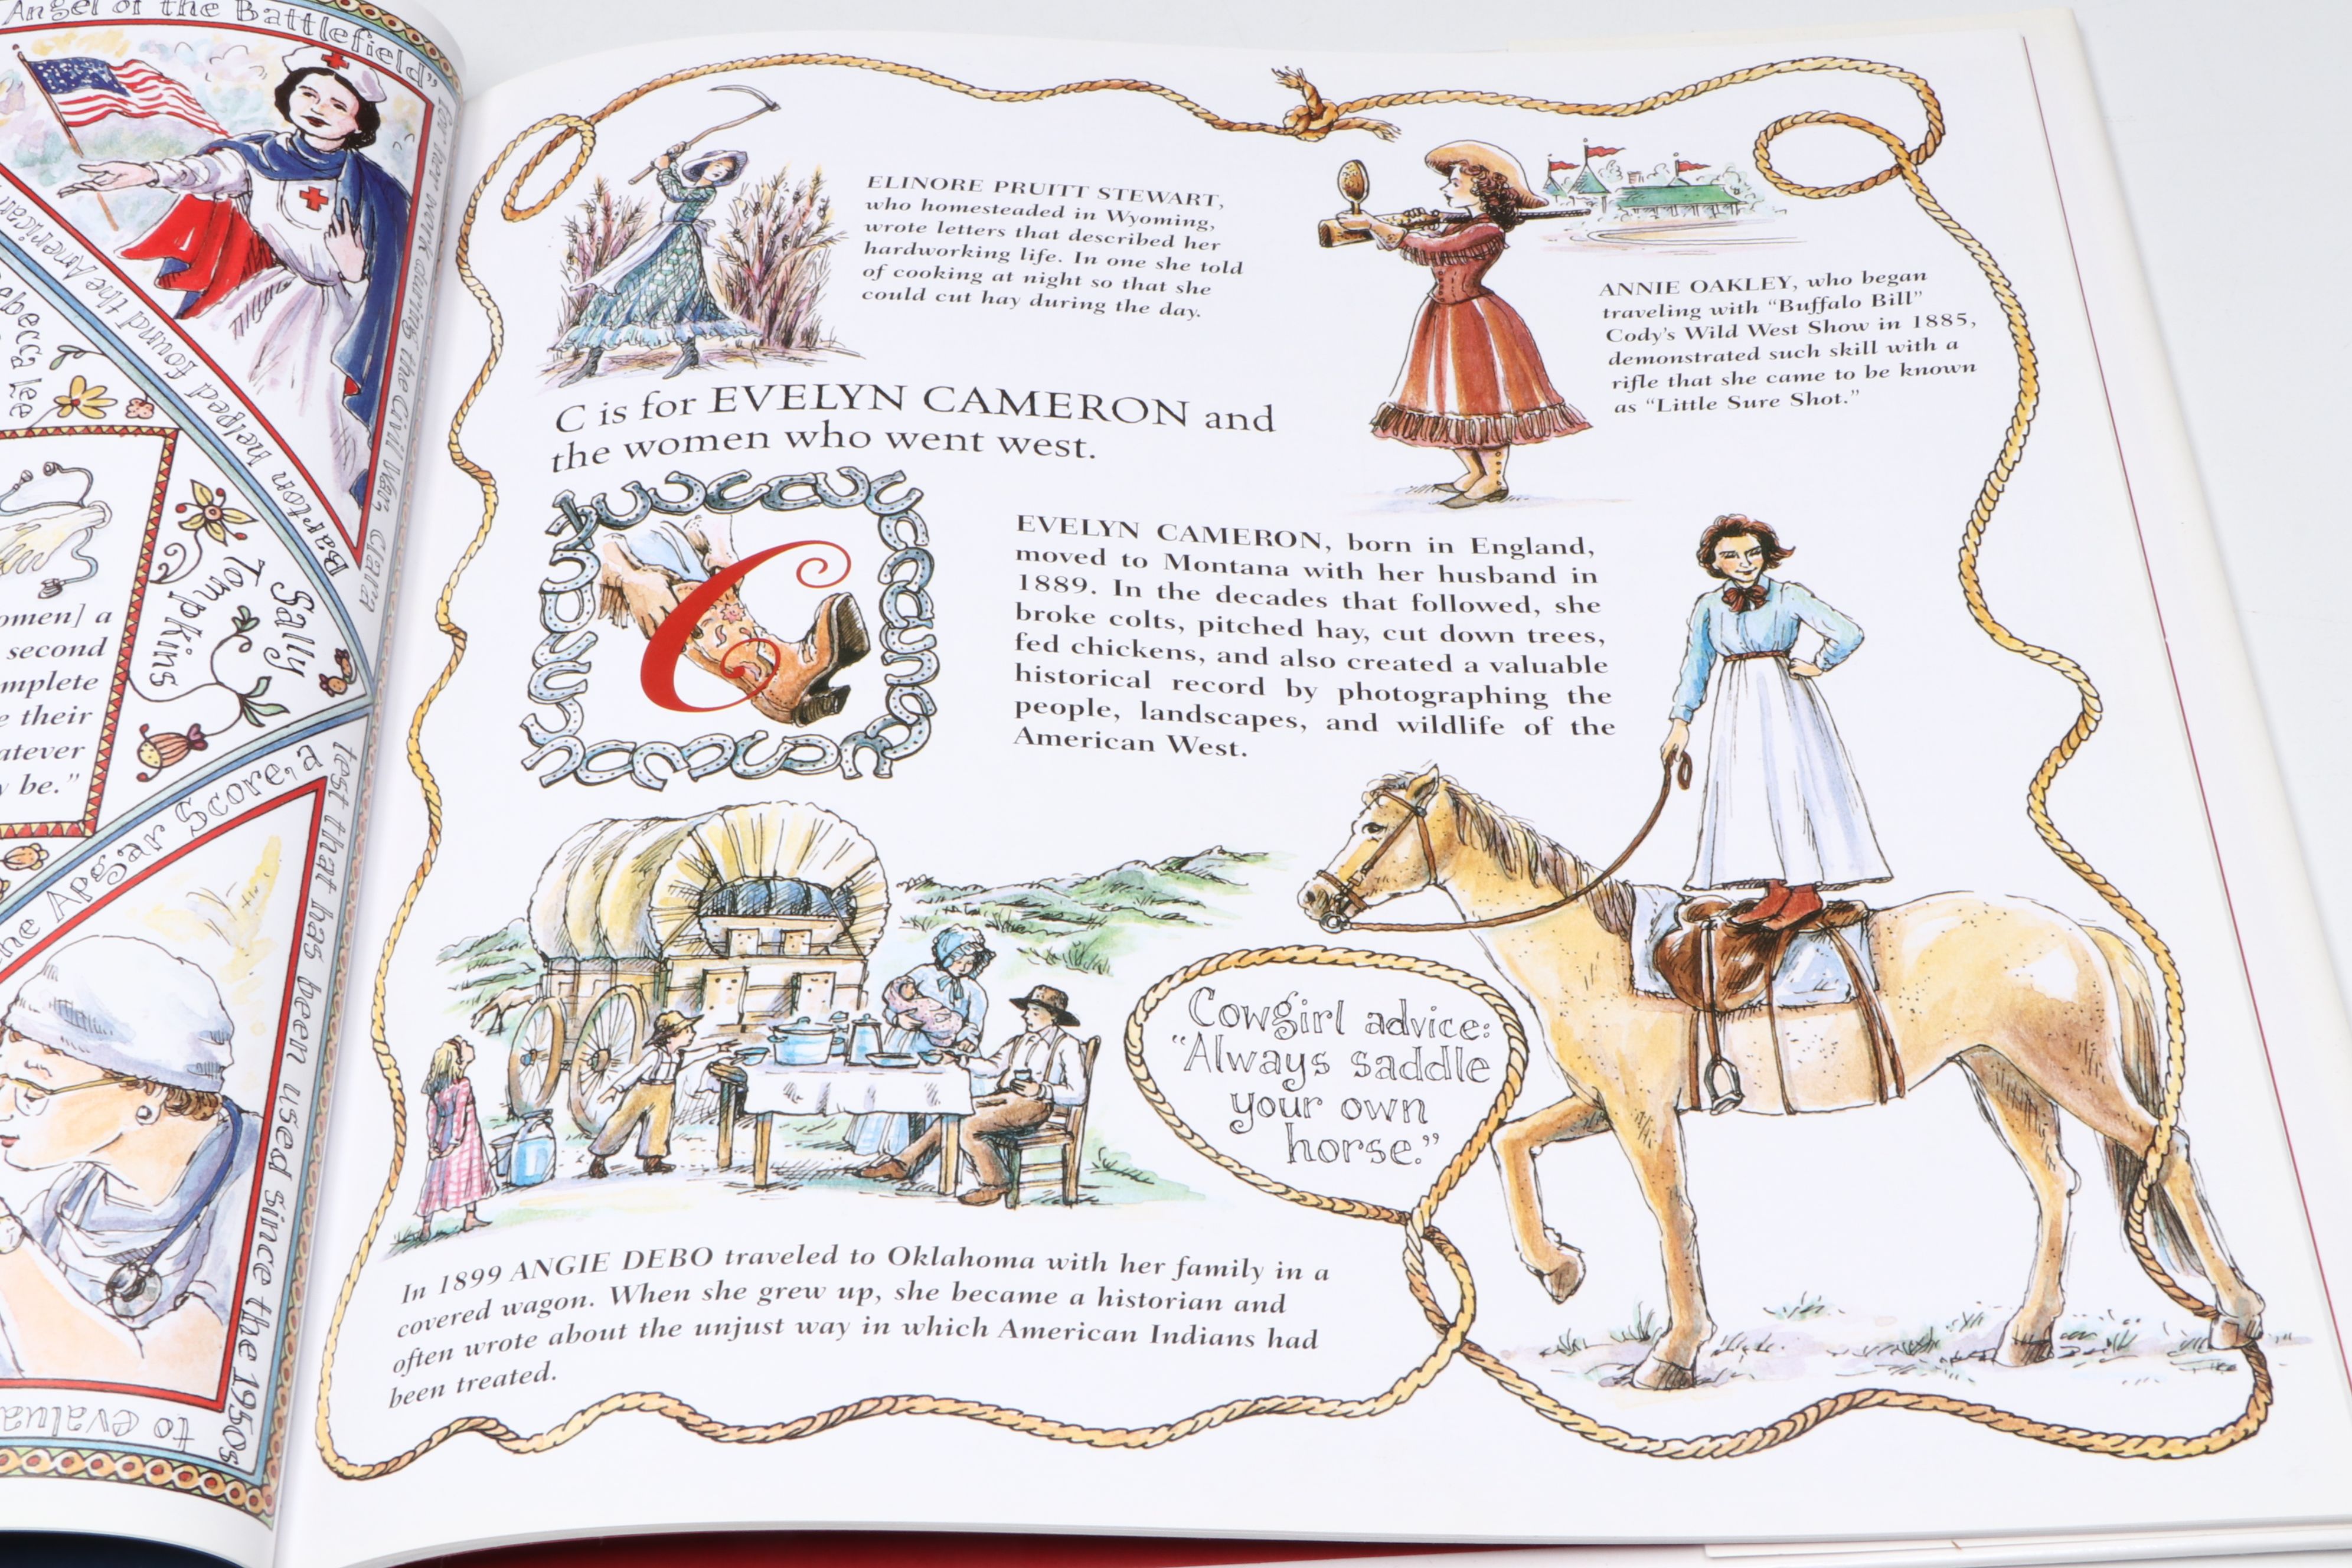 Angel of the Battlefield",
for her work during the Civil War, Clara
Barton helped found the American
Rebecca Lee
Sally
Tompkins
omen] a
second
mplete
e their
atever
y be."
the Apgar Score, a
test that has been used since the 1950s
to evalua
ELINORE PRUITT STEWART,
who homesteaded in Wyoming,
wrote letters that described her
hardworking life. In one she told
of cooking at night so that she
could cut hay during the day.
ANNIE OAKLEY, who began
traveling with "Buffalo Bill"
Cody's Wild West Show in 1885,
demonstrated such skill with a
rifle that she came to be known
as "Little Sure Shot."
C is for EVELYN CAMERON and
the women who went west.
C
EVELYN CAMERON, born in England,
moved to Montana with her husband in
1889. In the decades that followed, she
broke colts, pitched hay, cut down trees,
fed chickens, and also created a valuable
historical record by photographing the
people, landscapes, and wildlife of the
American West.
Cowgirl advice:
"Always saddle
your own
horse."
In 1899 ANGIE DEBO traveled to Oklahoma with her family in a
covered wagon. When she grew up, she became a historian and
often wrote about the unjust way in which American Indians had
been treated.